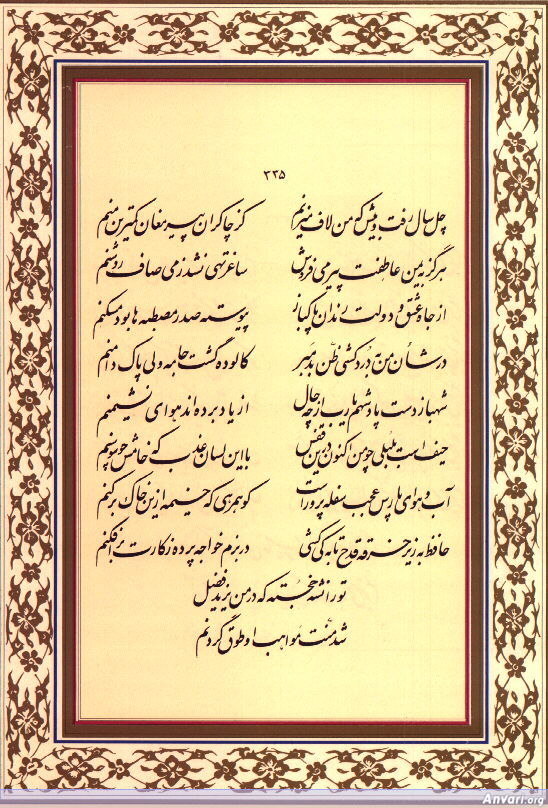 ۳۳۵
چل سال رفت و بیش که من لاف میزنم کز چاکران پیر مغان کمترین منم
هرگز به یمن عاطفت پیر می فروش ساغر تهی نشد ز می صاف روشنم
از جاه عشق و دولت رندان پاکباز پیوسته صدر مصطبه ها بود مسکنم
در شأن من به دردکشی ظن بد مبر کالوده گشت جامه ولی پاک دامنم
شهباز دست پادشهم یارب از چه حال از یاد برده اند هوای نشیمنم
حیف است بلبلی چو من اکنون درین قفس با این لسان عذب که خامش چو سوسنم
آب و هوای پارس عجب سفله پرور است کو همرهی که خیمه ازین خاک برکنم
حافظ به زیر خرقه قدح تا به کی کشی در بزم خواجه پرده ز کارت برافکنم
تورانشه خجسته که در من یزید فضل
شد منت مواهب او طوق گردنم
Anvari.org